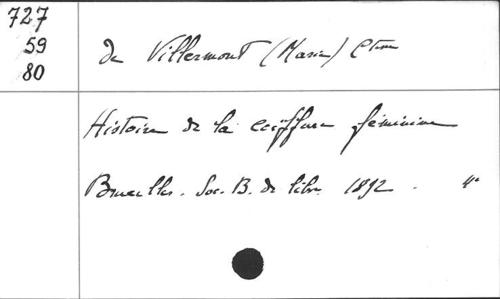 727
59
80
de Villermont (Marie) Ctesse
Histoire de la coiffure féminine
Bruxelles. Soc. B. de libr. 1892. 4°